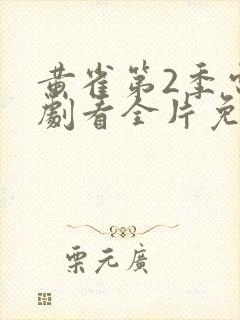 黄雀第2季电
劇看全片免
栗元廣